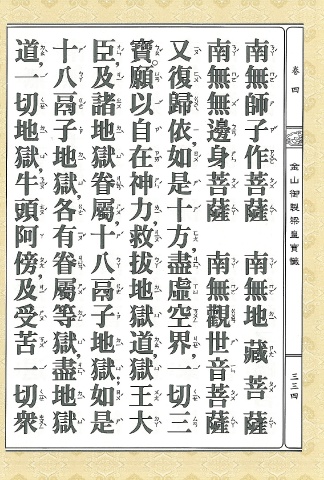 卷四
金山御製梁皇寶懺
三三四
南無師子作菩薩　南無地藏菩薩
南無無邊身菩薩　南無觀世音菩薩
又復歸依,如是十方,盡虛空界,一切三
寶。願以自在神力,救拔地獄道,獄王大
臣,及諸地獄眷屬,十八鬲子地獄,如是
十八鬲子地獄,各有眷屬等獄,盡地獄
道,一切地獄,牛頭阿傍,及受苦一切衆